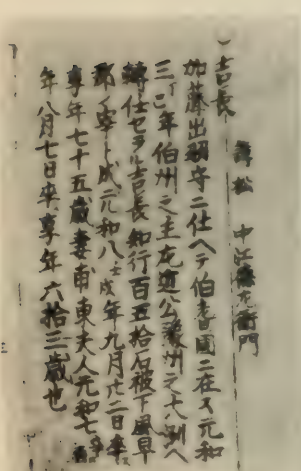 一吉長
諱松 中江徳左衛門
加藤出羽守ニ仕ヘテ伯耆国ニ在又元和
三丁巳年伯州之主左近公豫州之大洲ヘ
轉仕セラル吉長知行百五拾石被下風早
郡ノ宰ト成元和八壬戌年九月廿二日卒
享年七十五歳妻甫東夫人元和七
年八月七日卒享年六拾三歳也